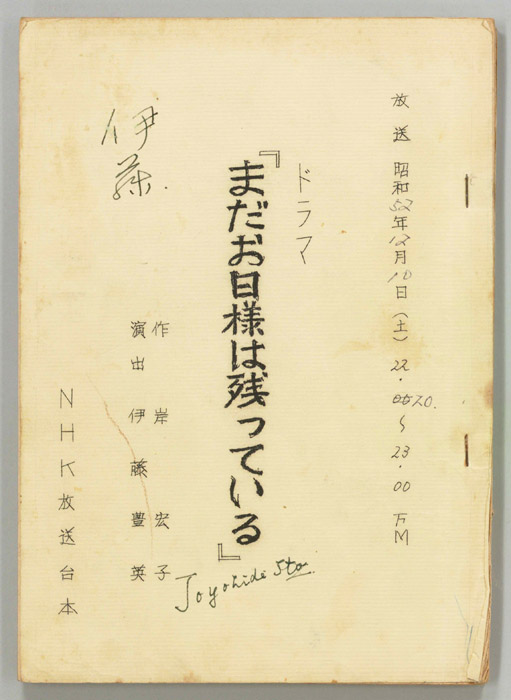 放送 昭和52年12月10日（土）22・0520.〜23・00 FM
ドラマ
『まだお日様は残っている』
伊藤
作 岸 宏子
演出 伊藤豊英
Toyohide Ito
NHK放送台本